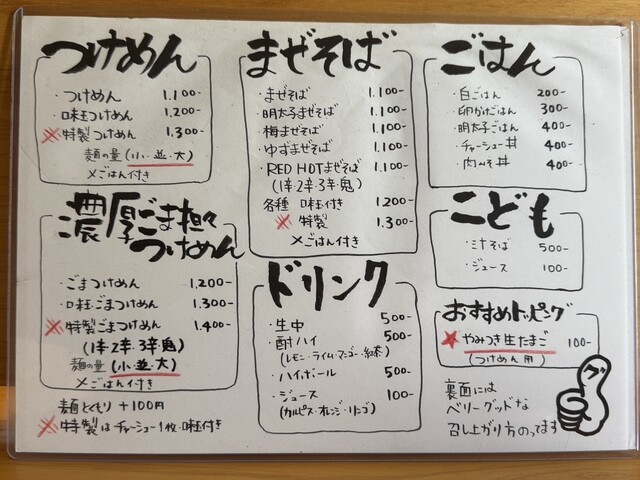 つけめん
・つけめん 1.100-
・味玉つけめん 1.200-
※特製つけめん 1.300-
麺の量(小・並・大)
〆ごはん付き
濃厚ごま担々つけめん
・ごまつけめん 1.200-
・味玉ごまつけめん 1.300-
※特製ごまつけめん 1.400-
(1辛2辛3辛鬼)
麺の量(小・並・大)
〆ごはん付き
麺とくもり +100円
※特製はチャーシュー1枚・味玉付き
まぜそば
・まぜそば 1.100-
・明太子まぜそば 1.100-
・梅まぜそば 1.100-
・ゆずまぜそば 1.100-
・RED HOTまぜそば 1.100-
(1辛2辛3辛鬼)
各種 味玉付き 1.200-
※特製 1.300-
〆ごはん付き
ドリンク
・生中 500-
・酎ハイ 500-
(レモン・ライム・マンゴー・紅茶)
・ハイボール 500-
・ジュース 100-
(カルピス・オレンジ・リンゴ)
ごはん
・白ごはん 200-
・卵かけごはん 300-
・明太子ごはん 400-
・チャーシュー丼 400-
・肉みそ丼 400-
こども
・ミニそば 500-
・ジュース 100-
おすすめトッピング
★やみつき生たまご 100-
(つけめん用)
グ
裏面には
ベリーグッドな
召し上がり方のってます